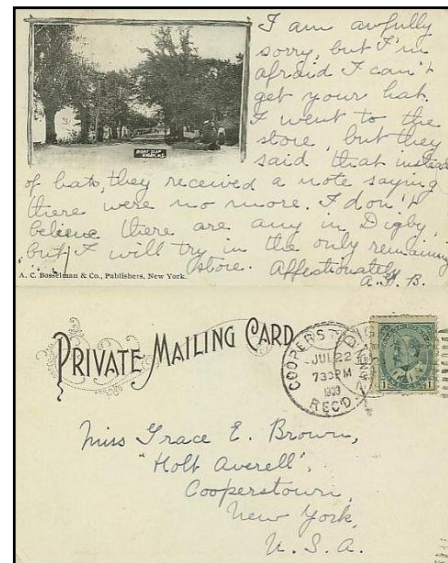 I am awfully
sorry, but I'm
afraid I can't
get your hat.
I went to the
store, but they
said that instead
of hats, they received a note saying
there were no more. I don't
believe there are any in Digby,
but I will try in the only remaining
store. Affectionately
A. C. Bosselman & Co., Publishers, New York.
PRIVATE MAILING CARD
COOPERST
JUL 22
730 PM
1903
REC'D.
1 1
Miss Grace E. Brown,
"Holt Averell",
Cooperstown,
New York,
U. S. A.